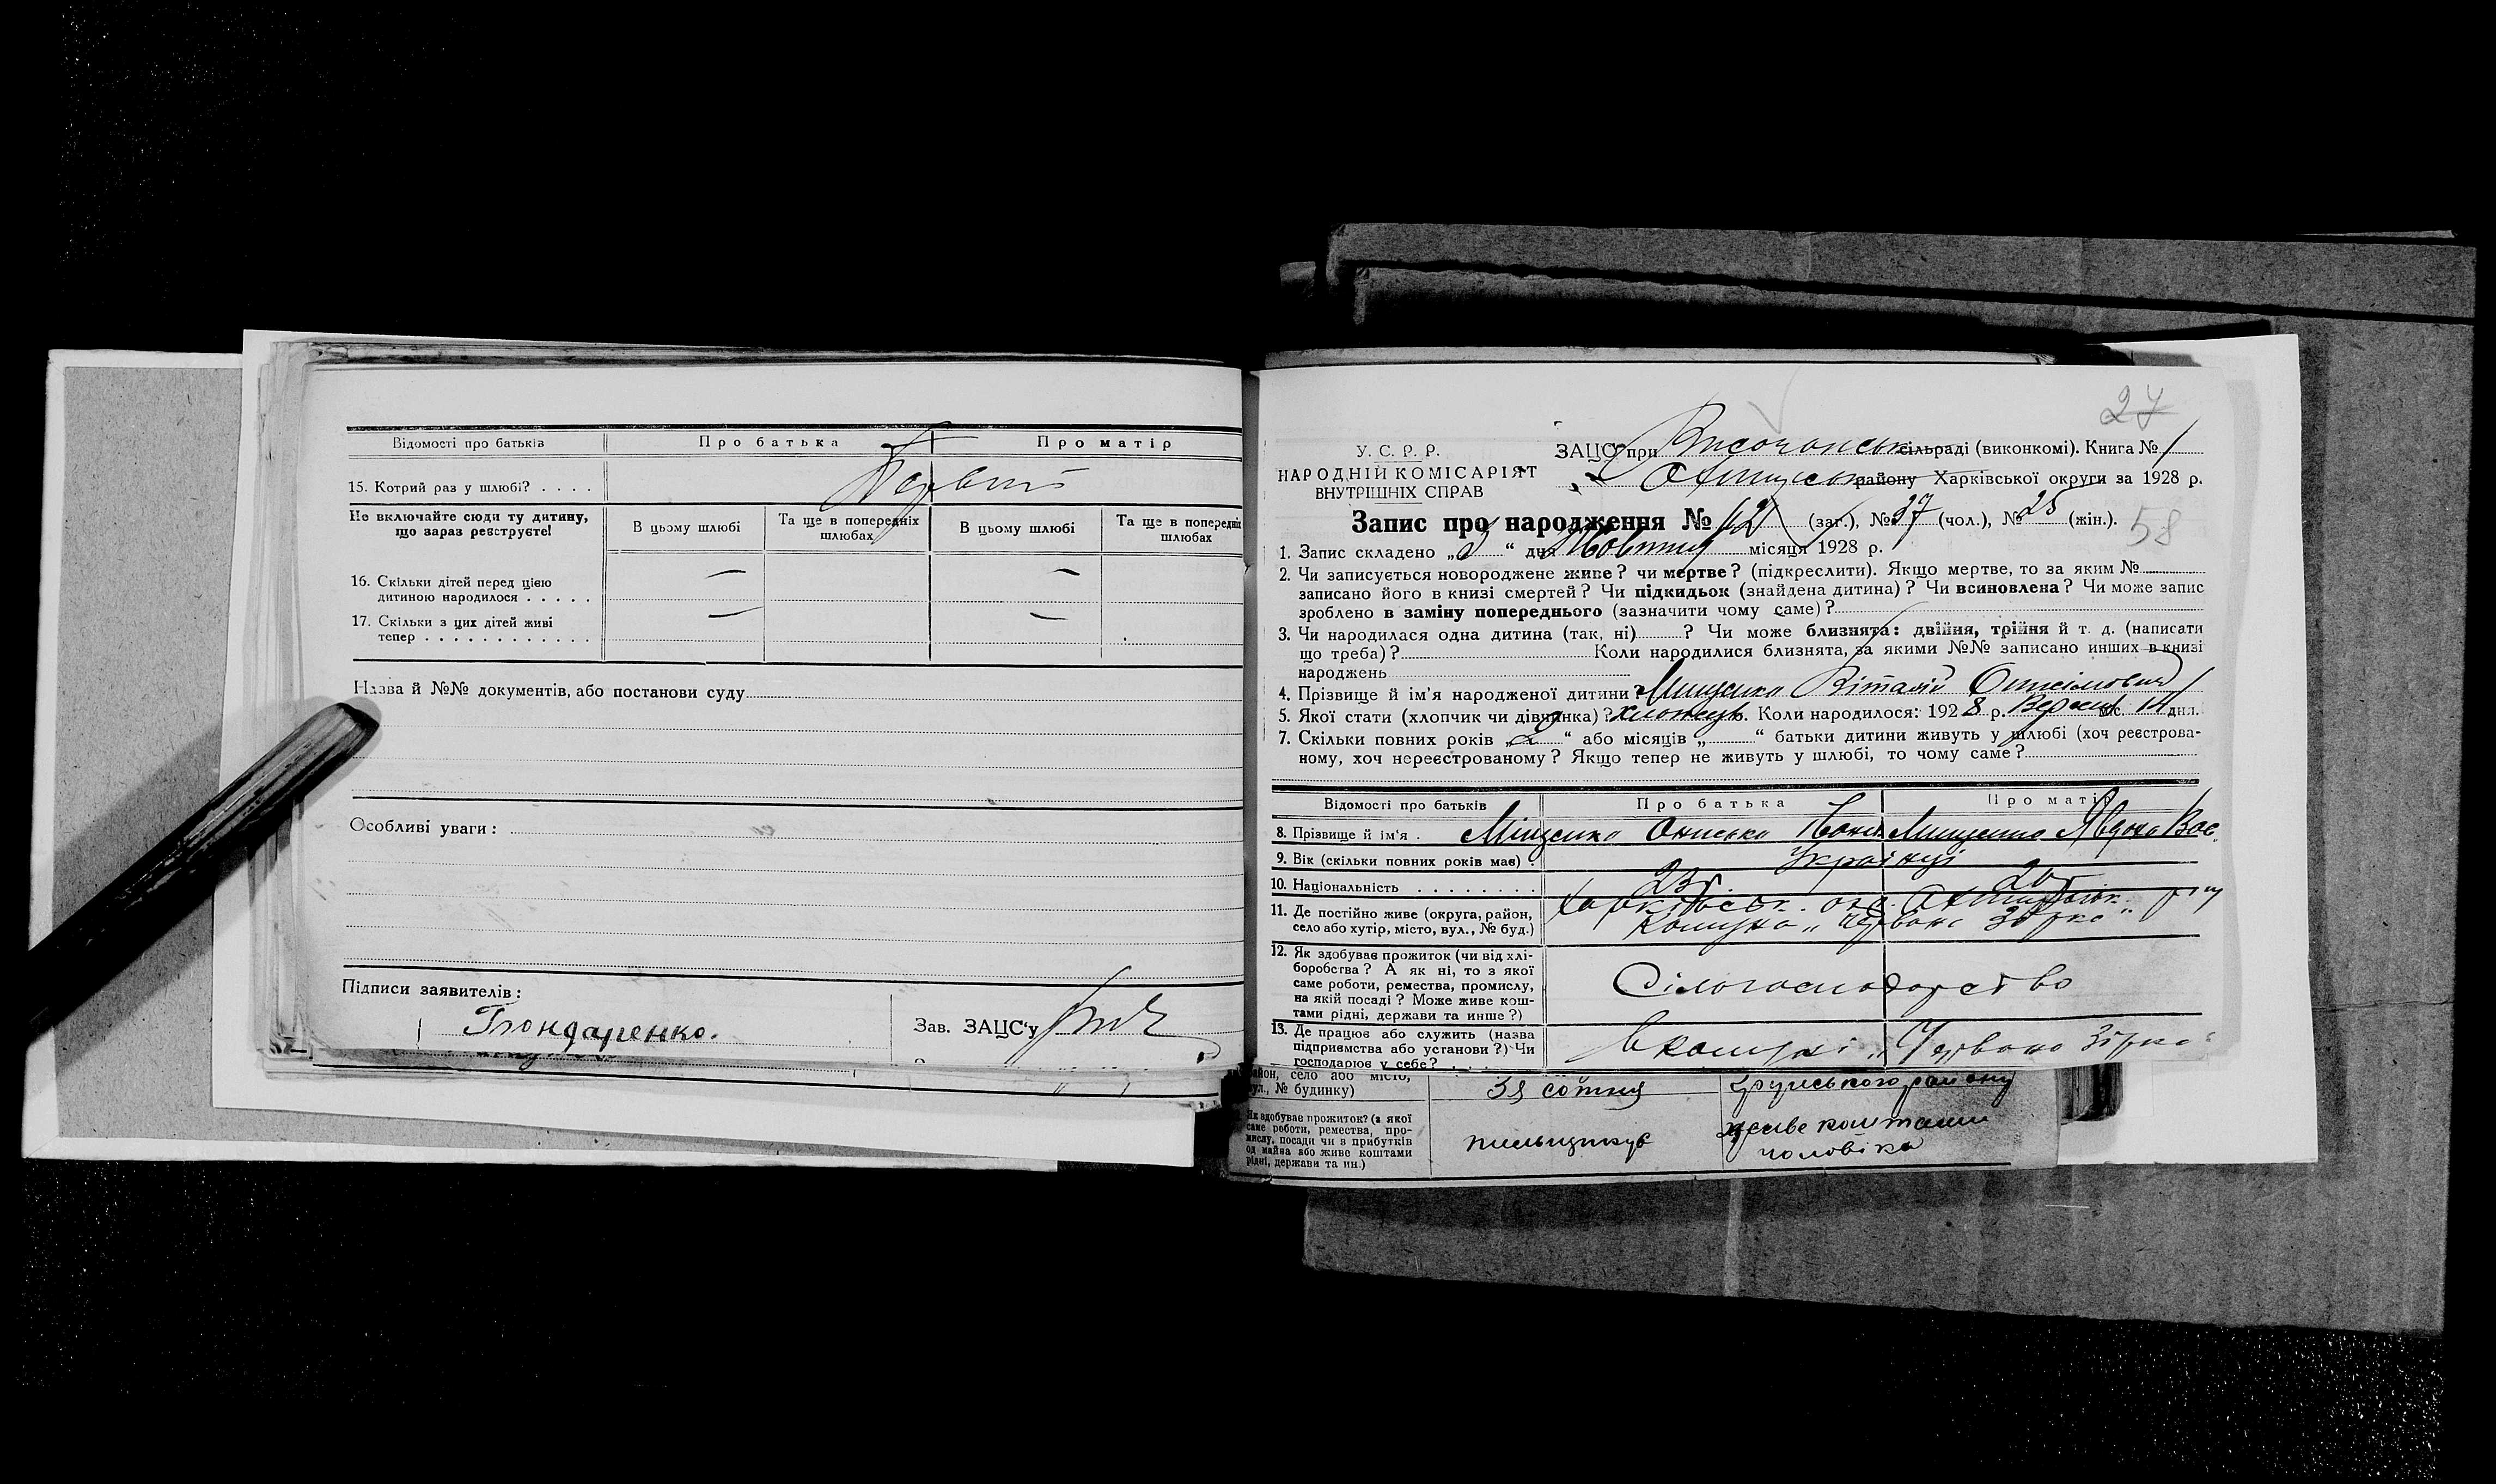 Відомості про батьків Про батька Про матір
15. Котрий раз у шлюбі? . . . .
Не включайте сюди ту дитину, що зараз реєструєте!
В цьому шлюбі Та ще в попередніх шлюбах В цьому шлюбі Та ще в попередніх шлюбах
16. Скільки дітей перед цією
дитиною народилося . . . . . — —
17. Скільки з цих дітей живі
тепер . . . . . . . . . . . . — —
Назва й №№ документів, або постанови суду
Особливі уваги:
Підписи заявителів:
Гвондаренко.
Зав. ЗАЦС'у
27
У. С. Р. Р.
НАРОДНІЙ КОМІСАРІЯТ
ВНУТРІШНІХ СПРАВ
ЗАЦС при Височанськ сільраді (виконкомі). Книга № 1
Охтирськ району Харківської округи за 1928 р.
Запис про народження № 62 (заг.), № 37 (чол.), № 25 (жін.).
58
1. Запис складено „3“ дня Жовтня місяця 1928 р.
2. Чи записується новороджене живе? чи мертве? (підкреслити). Якщо мертве, то за яким №
записано його в книзі смертей? Чи підкидьок (знайдена дитина)? Чи всиновлена? Чи може запис
зроблено в заміну попереднього (зазначити чому саме)?
3. Чи народилася одна дитина (так, ні) ? Чи може близнята: двійня, трійня й т. д. (написати
що треба)? Коли народилися близнята, за якими №№ записано инших в книзі
народжень
4. Прізвище й ім'я народженої дитини? Мищенко Віталій Онисімович
5. Якої стати (хлопчик чи дівчинка)? хлопець. Коли народилося: 1928 р. Вересня міс. 14 дня.
7. Скільки повних років „2“ або місяців „ “ батьки дитини живуть у шлюбі (хоч реєстрова-
ному, хоч нереєстрованому? Якщо тепер не живуть у шлюбі, то чому саме?
Відомості про батьків Про батька Про матір
8. Прізвище й ім'я . Міщенко Онисько Мищенко Явдоха Вас.
9. Вік (скільки повних років має) . Українці
10. Національність . . . . . . . . 23р. 20р
11. Де постійно живе (округа, район,
село або хутір, місто, вул., № буд.)
Харківськ. окр. р-ну
Комуна „Червона Зірка“
12. Як здобуває прожиток (чи від хлі-
боробства? А як ні, то з якої
саме роботи, ремества, промислу,
на якій посаді? Може живе кош-
тами рідні, держави та инше?)
Сілогосподарство
13. Де працює або служить (назва
підприємства або установи?) Чи
господарює у себе? . . .
В комуні „Червона Зірка“
район, село або місто,
вул., № будинку)
3я сотня
району
Як здобуває прожиток? (з якої
саме роботи, ремества, про-
мислу, посади чи з прибутків
од майна або живе коштами
рідні, держави та ин.)
пильщикує
живе коштами
чоловіка